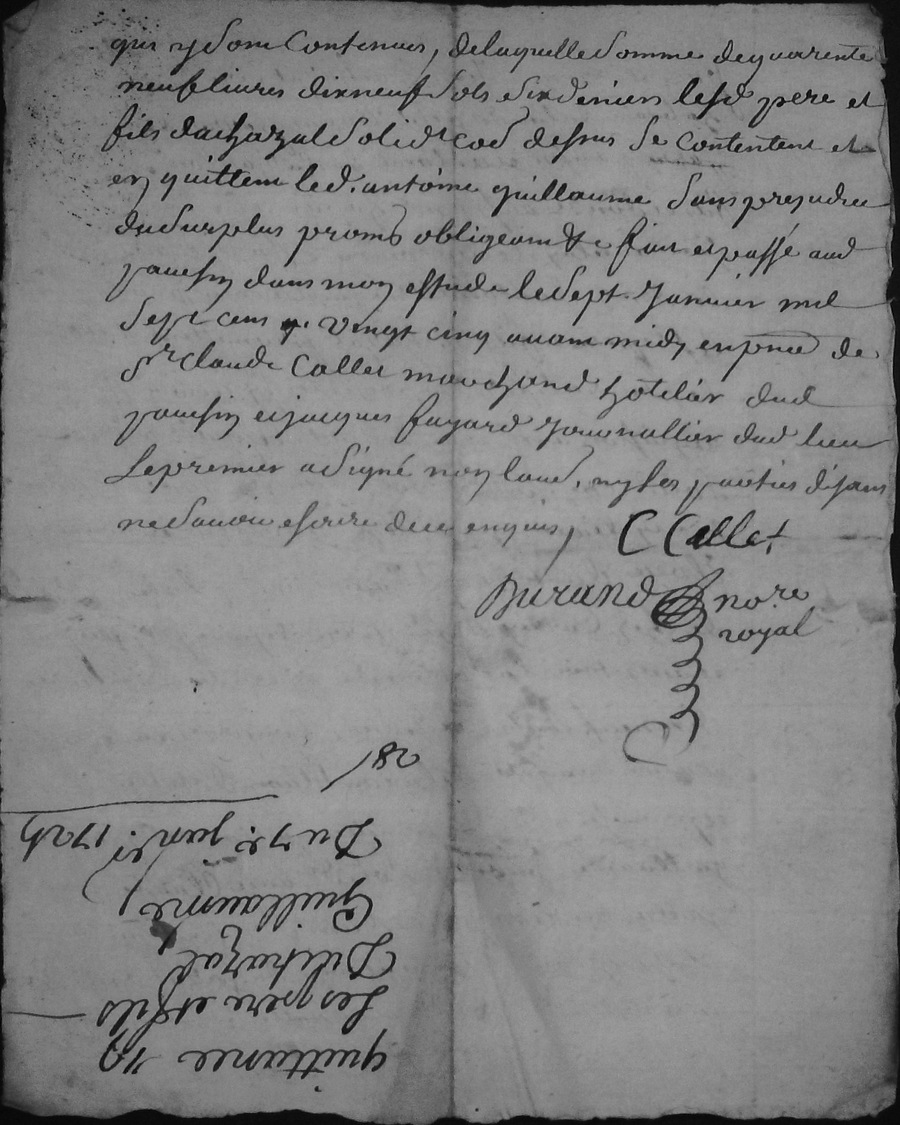 qui y sont contenues, de laquelle somme de quarente
neuf livres dix neuf sols six deniers lesd pere et
fils dachazal solidt co͞e dessus se contentent et
en quittent led. antoine guillaume sans prejudice
du surplus proms obligeant &c fait et passé aud
pousin dans mon estude le sept janvier mil
sept cens vingt cinq avant midy en pn̄ce de
Sr claude Collet marchand hôtelier dud
pousin et jacques fayard journallier dud lieu
Le premier a signé non laud, ny les parties disant
ne savoir escrire de ce enquis,
C Collet
Durand no.re
royal
quittance 19
Les pere et fils
Dachazal
Guillaume
Du 7e janer. 1725
182